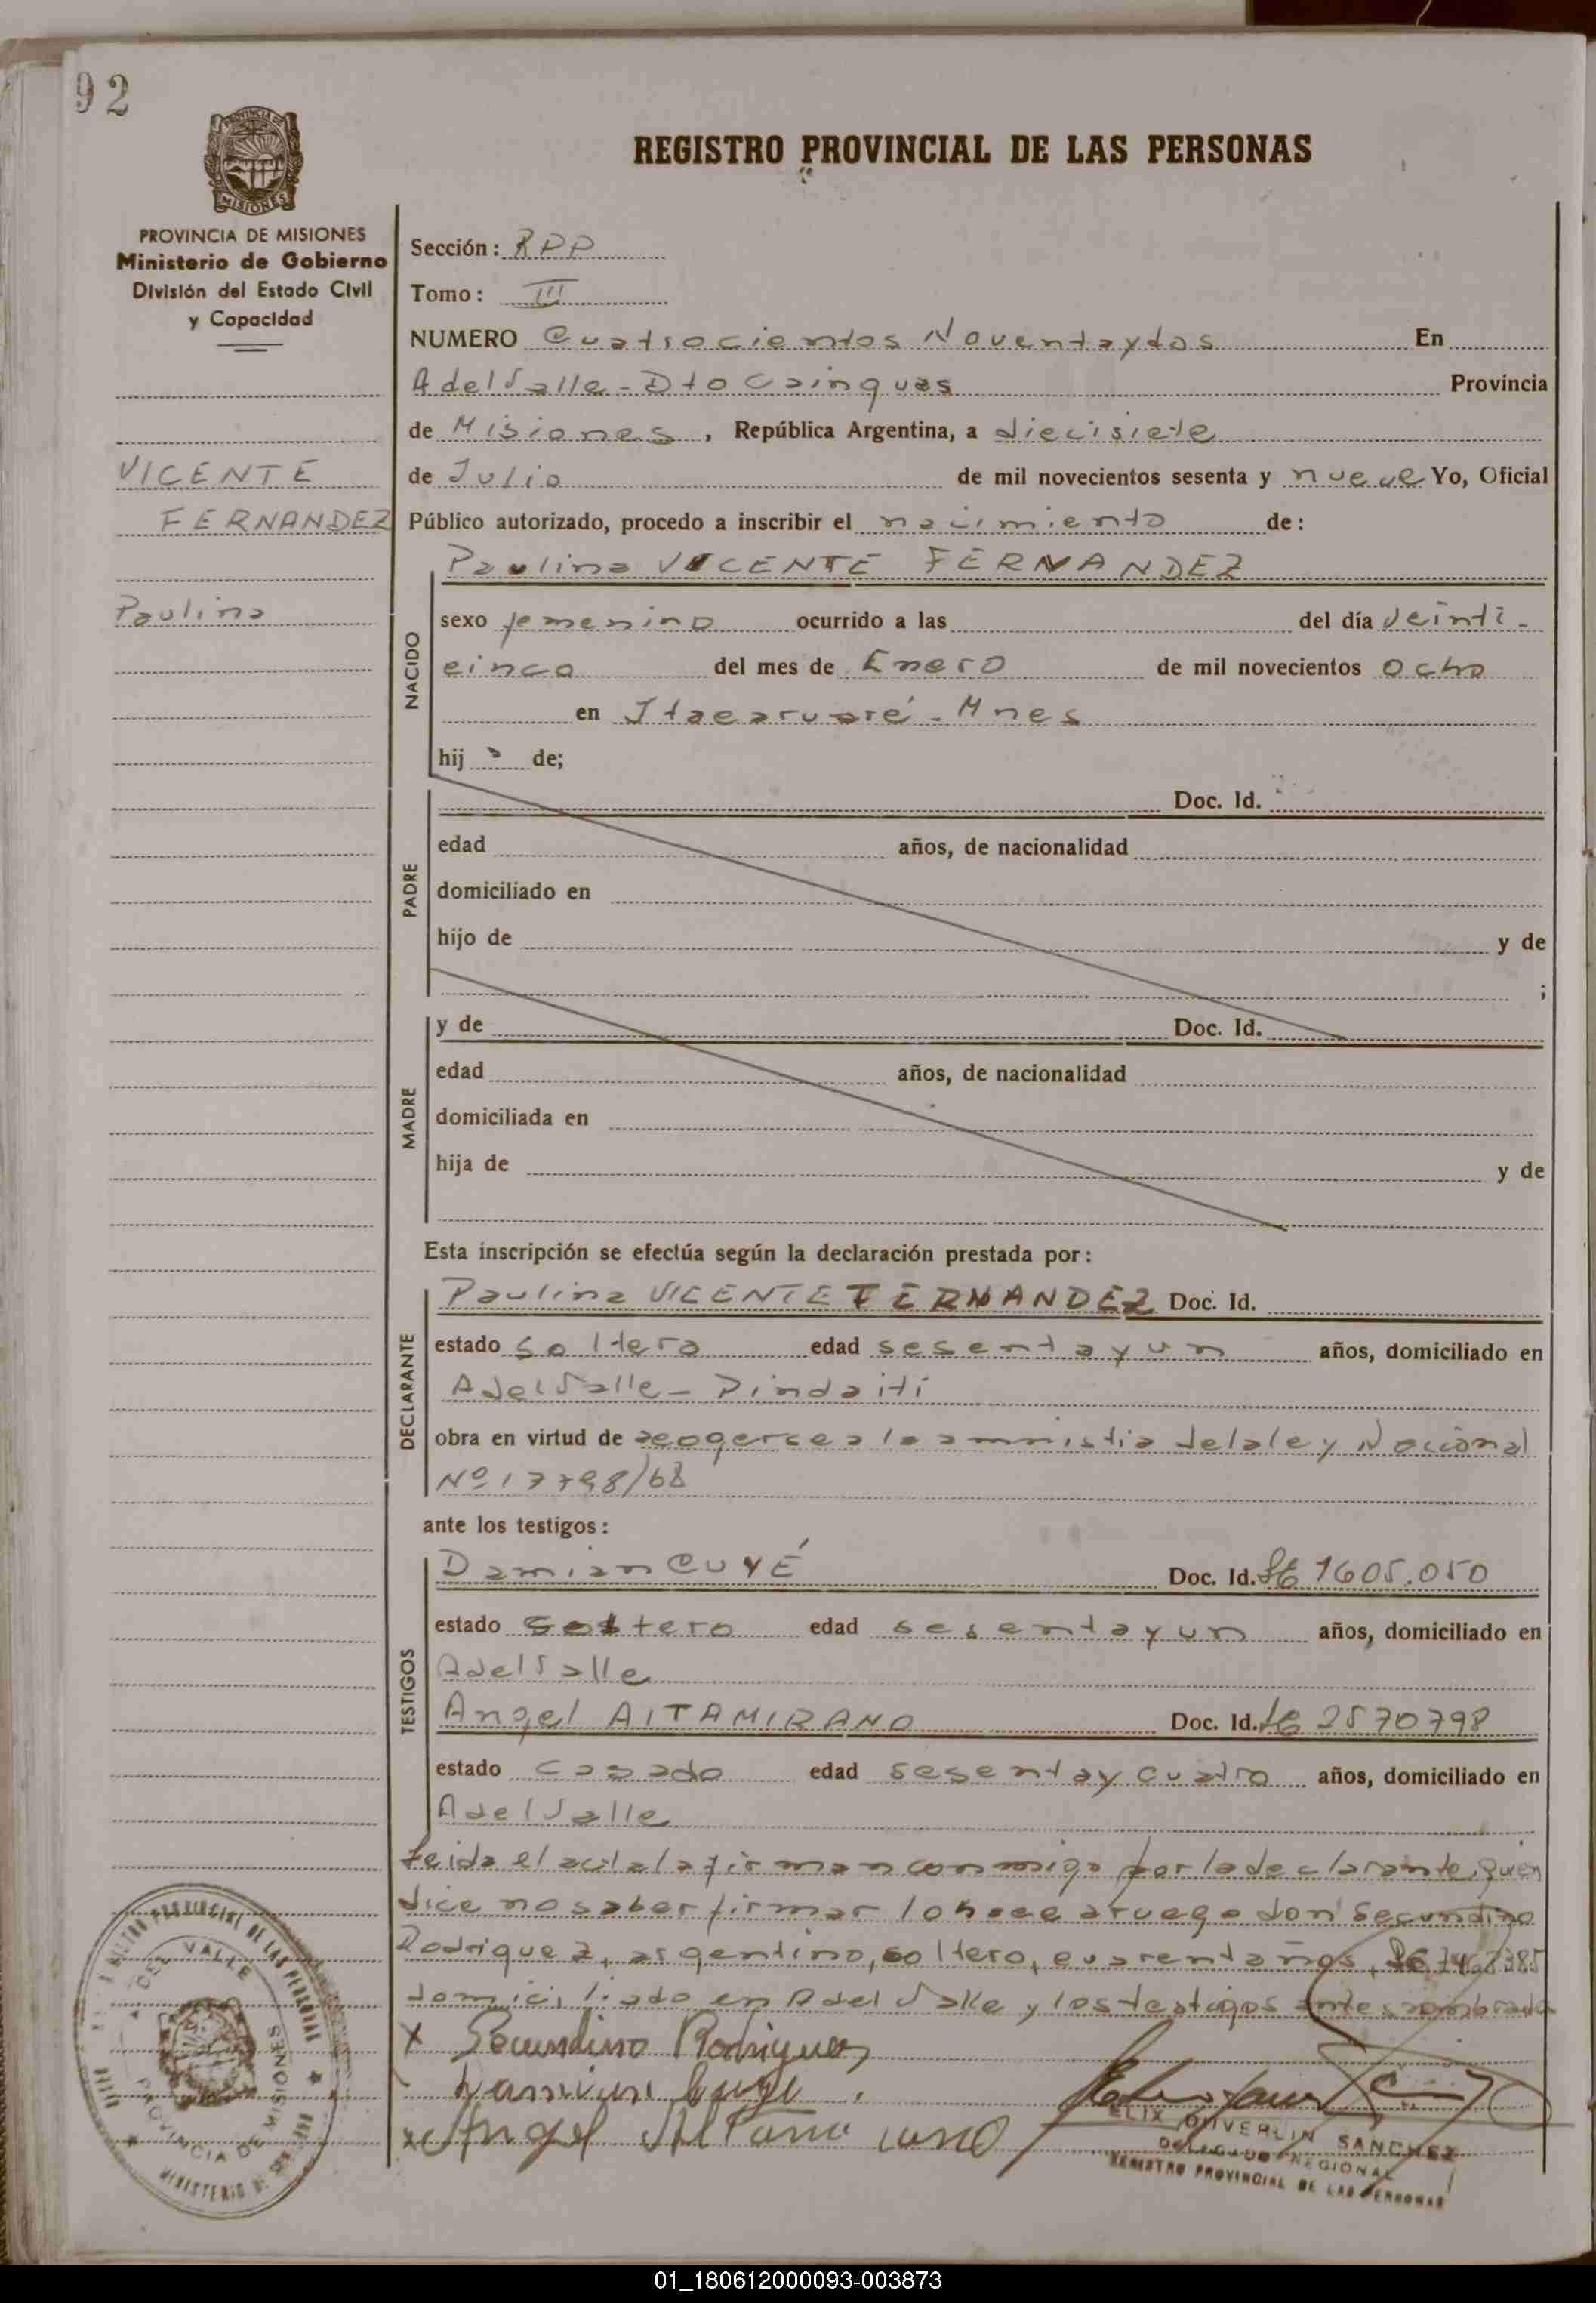 92
REGISTRO PROVINCIAL DE LAS PERSONAS
PROVINCIA DE MISIONES
Ministerio de Gobierno
División del Estado Civil
y Capacidad
VICENTE
FERNANDEZ
Paulina
Sección: RPP
Tomo: III
NUMERO Cuatrocientos Noventaydos En
A del Valle - Dto Cainguas Provincia
de Misiones, República Argentina, a diecisiete
de Julio de mil novecientos sesenta y nueve Yo, Oficial
Público autorizado, procedo a inscribir el nacimiento de:
NACIDO
Paulina VICENTE FERNANDEZ
sexo femenino ocurrido a las del día veinti-
cinco del mes de Enero de mil novecientos ocho
en Itacaruaré - Mnes
hij a de;
PADRE
Doc. Id.
edad años, de nacionalidad
domiciliado en
hijo de y de
;
MADRE
y de Doc. Id.
edad años, de nacionalidad
domiciliada en
hija de y de
Esta inscripción se efectúa según la declaración prestada por:
DECLARANTE
Paulina VICENTE FERNANDEZ Doc. Id.
estado soltera edad sesentayun años, domiciliado en
A del Valle - Pindaiti
obra en virtud de acogerse a la amnistia de la ley Nacional
Nº 17798/68
ante los testigos:
TESTIGOS
Damian CUYÉ Doc. Id. 1605.050
estado soltero edad sesentayun años, domiciliado en
A del Valle
Angel AlTAMIRANO Doc. Id. 2570798
estado casado edad sesentaycuatro años, domiciliado en
A del Valle
Leida el acta la firman conmigo por la declarante, quien
dice no saber firmar lo hace a ruego don Secundino
Rodriguez, argentino, soltero, cuarent años,
domiciliado en A del Valle y los testigos antes nombrado
x Secundino Rodriguez
Damian Cuye
x Angel Altamirano
ELIX OLIVERLIN SANCHEZ
DELEGADO REGIONAL
REGISTRO PROVINCIAL DE LAS PERSONAS
REGISTRO PROVINCIAL DE LAS PERSONAS
A. DEL VALLE
PROVINCIA DE MISIONES
MINISTERIO DE
01_180612000093-003873